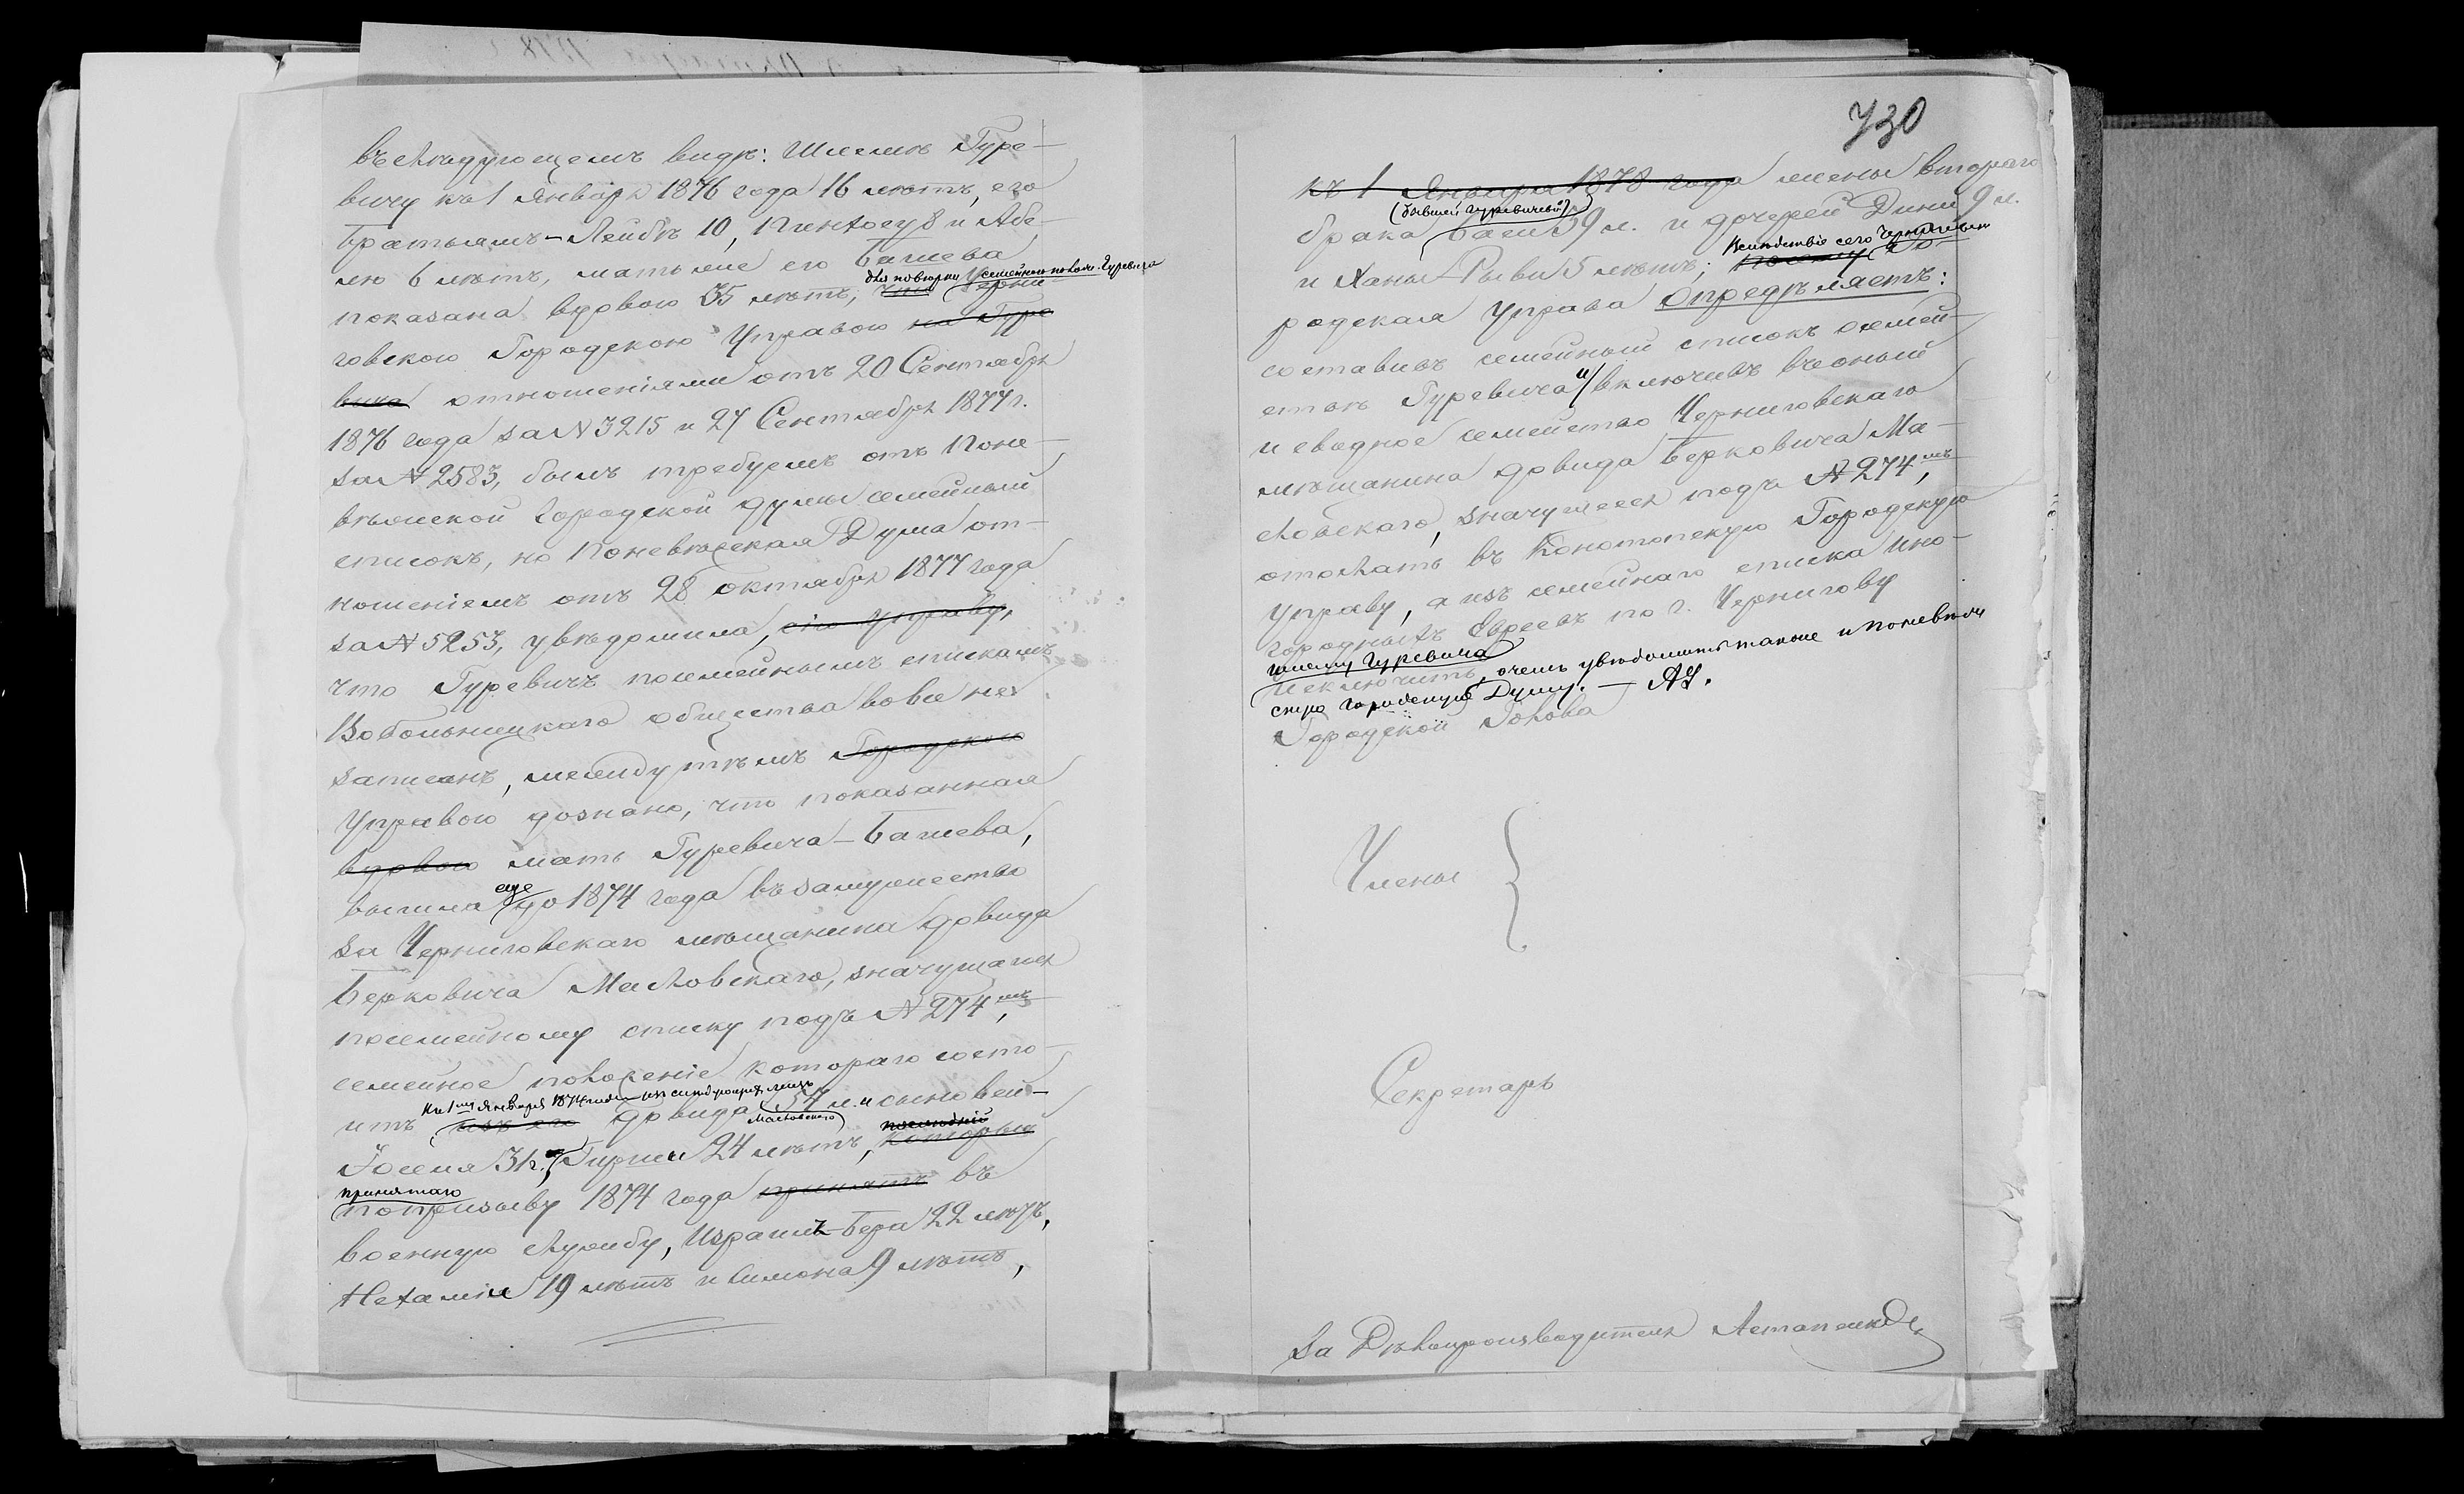 въ слѣдующемъ видѣ: Шлемѣ Гуре-
вичу къ 1 Января 1876 года 16 лѣтъ, его
братьямъ - Лейбѣ 10, Пинхосу 8 и Абе-
лю 6 лѣтъ, мать же его Башева
для повѣрки семейнаго полож. Гуревича
показана вдовою 35 лѣтъ; Черни-
говскою Городскою Управою на Гуре
вича отношеніями отъ 20 Сентября
1876 года за № 3215 и 27 Сентября 1877 г.
за № 2583, былъ требуемъ отъ Поне-
вѣжской Городской Думы семейный
списокъ, но Поневѣжская Дума от-
ношеніемъ отъ 28 октября 1877 года
за № 5253, увѣдомила, сію Управу,
что Гуревичъ посемейнымъ спискамъ
Вобольницкаго общества вовсе не
записанъ, между тѣмъ Городскою
Управою дознано, что показанная
вдовою мать Гуревича - Башева,
еще
вышла до 1874 года въ замужество
за Черниговскаго мѣщанина Довида
Берковича Масловскаго, значущагося
посемейному списку подъ № 274 мъ,
семейное положеніе котораго состо-
къ 1му Января 1874 года изъ слѣдующихъ лицъ
итъ изъ его Довида 57 л. и сыновей -
Масловскаго последній
Іосель 31 г., Гирши 24 лѣтъ, который
принятаго
по призыву 1874 года принятъ въ
военную службу, Израиль-Бера 22 лѣтъ,
Нехаміи 19 лѣтъ и Симона 9 лѣтъ,
730
къ 1 Января 1878 года жены втораго
(бывшей Гуревичевой)
брака Баси 39 л. и дочерей Дины 9 л.
Вслѣдствіе сего Черниговская
и Ханы-Рывы 5 лѣтъ; посему Го-
родская Управа Опредѣляетъ:
составивъ семейный списокъ о семей-
ствѣ Гуревича и включивъ въ оный
и сводное семейство Черниговскаго
мѣщанина Довида Берковича Ма-
словскаго, значущееся подъ № 274 мъ,
отослать въ Конотопскую Городскую
Управу, а изъ семейнаго списка ино-
городныхъ Евреевъ по г. Чернигову
Шлему Гуревича
исключить, о чемъ увѣдомить также и Поневѣж-
скую Городскую Думу. —
Городской Голова
Члены
Секретарь
За Дѣлопроизводителя